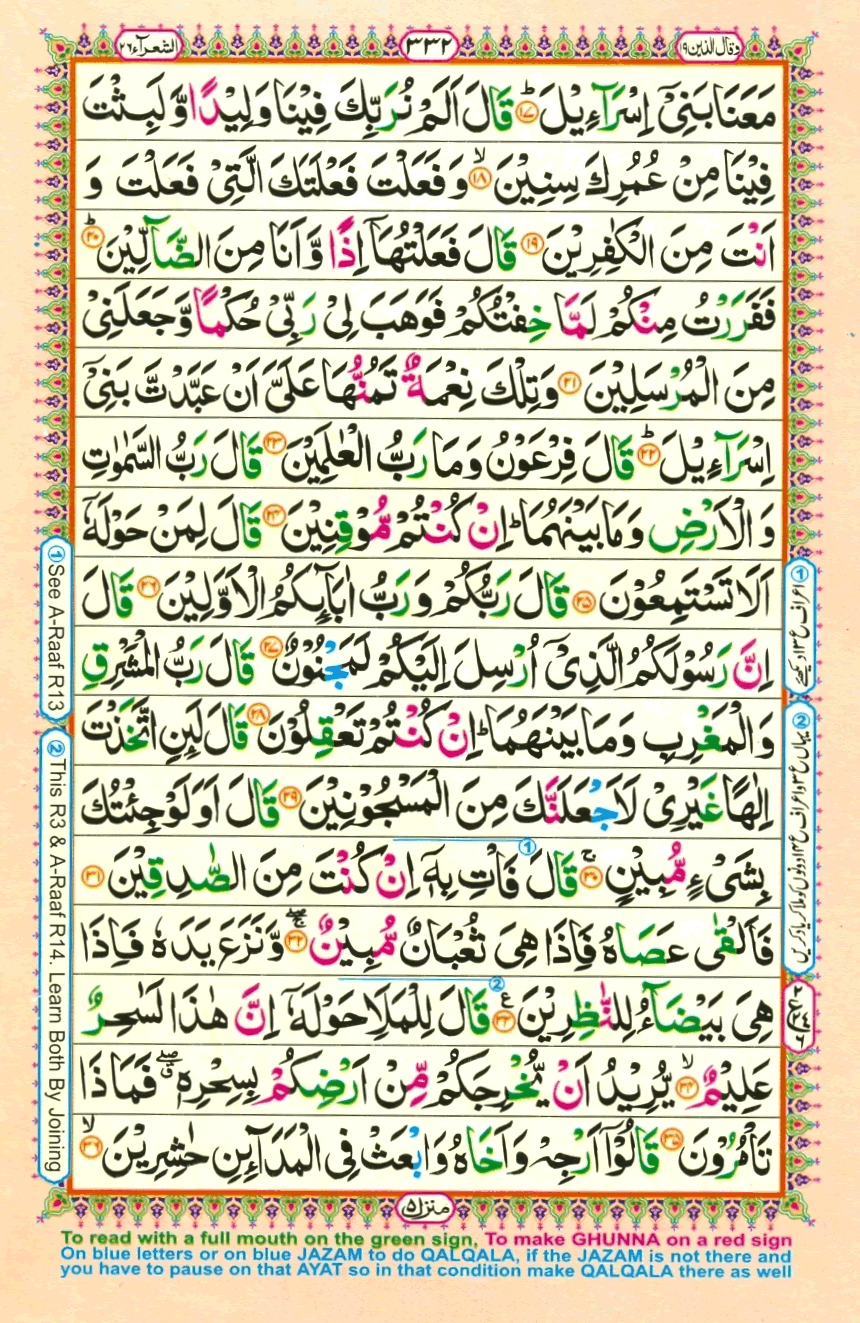 وقال الذین ۱۹
۳۳۲
الشعرآء ۲۶
مَعَنَا بَنِیْۤ اِسْرَآءِیْلَ ؕ۱۷ قَالَ اَلَمْ نُرَبِّكَ فِیْنَا وَلِیْدًا وَّ لَبِثْتَ
فِیْنَا مِنْ عُمُرِكَ سِنِیْنَ ۙ۱۸ وَ فَعَلْتَ فَعْلَتَكَ الَّتِیْ فَعَلْتَ وَ
اَنْتَ مِنَ الْكٰفِرِیْنَ ۱۹ قَالَ فَعَلْتُهَاۤ اِذًا وَّ اَنَا مِنَ الضَّآلِّیْنَ ؕ۲۰
فَفَرَرْتُ مِنْكُمْ لَمَّا خِفْتُكُمْ فَوَهَبَ لِیْ رَبِّیْ حُكْمًا وَّ جَعَلَنِیْ
مِنَ الْمُرْسَلِیْنَ ۲۱ وَ تِلْكَ نِعْمَةٌ تَمُنُّهَا عَلَیَّ اَنْ عَبَّدْتَّ بَنِیْۤ
اِسْرَآءِیْلَ ؕ۲۲ قَالَ فِرْعَوْنُ وَ مَا رَبُّ الْعٰلَمِیْنَ ۲۳ قَالَ رَبُّ السَّمٰوٰتِ
وَ الْاَرْضِ وَ مَا بَیْنَهُمَا ؕ اِنْ كُنْتُمْ مُّوْقِنِیْنَ ۲۴ قَالَ لِمَنْ حَوْلَهٗۤ
اَلَا تَسْتَمِعُوْنَ ۲۵ قَالَ رَبُّكُمْ وَ رَبُّ اٰبَآىِٕكُمُ الْاَوَّلِیْنَ ۲۶ قَالَ
اِنَّ رَسُوْلَكُمُ الَّذِیْۤ اُرْسِلَ اِلَیْكُمْ لَمَجْنُوْنٌ ۲۷ قَالَ رَبُّ الْمَشْرِقِ
وَ الْمَغْرِبِ وَ مَا بَیْنَهُمَا ؕ اِنْ كُنْتُمْ تَعْقِلُوْنَ ۲۸ قَالَ لَىِٕنِ اتَّخَذْتَ
اِلٰهًا غَیْرِیْ لَاَجْعَلَنَّكَ مِنَ الْمَسْجُوْنِیْنَ ۲۹ قَالَ اَوَ لَوْ جِئْتُكَ
بِشَیْءٍ مُّبِیْنٍ ۚ۳۰ قَالَ فَاْتِ بِهٖۤ اِنْ كُنْتَ مِنَ الصّٰدِقِیْنَ ۳۱
فَاَلْقٰی عَصَاهُ فَاِذَا هِیَ ثُعْبَانٌ مُّبِیْنٌ ۚۖ۳۲ وَّ نَزَعَ یَدَهٗ فَاِذَا
هِیَ بَیْضَآءُ لِلنّٰظِرِیْنَ ۳۳ ع قَالَ لِلْمَلَاِ حَوْلَهٗۤ اِنَّ هٰذَا لَسٰحِرٌ
عَلِیْمٌ ۙ۳۴ یُّرِیْدُ اَنْ یُّخْرِجَكُمْ مِّنْ اَرْضِكُمْ بِسِحْرِهٖ ۖۗ فَمَاذَا
تَاْمُرُوْنَ ۳۵ قَالُوْۤا اَرْجِهْ وَ اَخَاهُ وَ ابْعَثْ فِی الْمَدَآىِٕنِ حٰشِرِیْنَ ۙ۳۶
① See A-Raaf R13
② This R3 & A-Raaf R14. Learn Both By Joining
① اعراف ع ۱۳ دیکھئے
منزل ۵
To read with a full mouth on the green sign, To make GHUNNA on a red sign
On blue letters or on blue JAZAM to do QALQALA, if the JAZAM is not there and
you have to pause on that AYAT so in that condition make QALQALA there as well